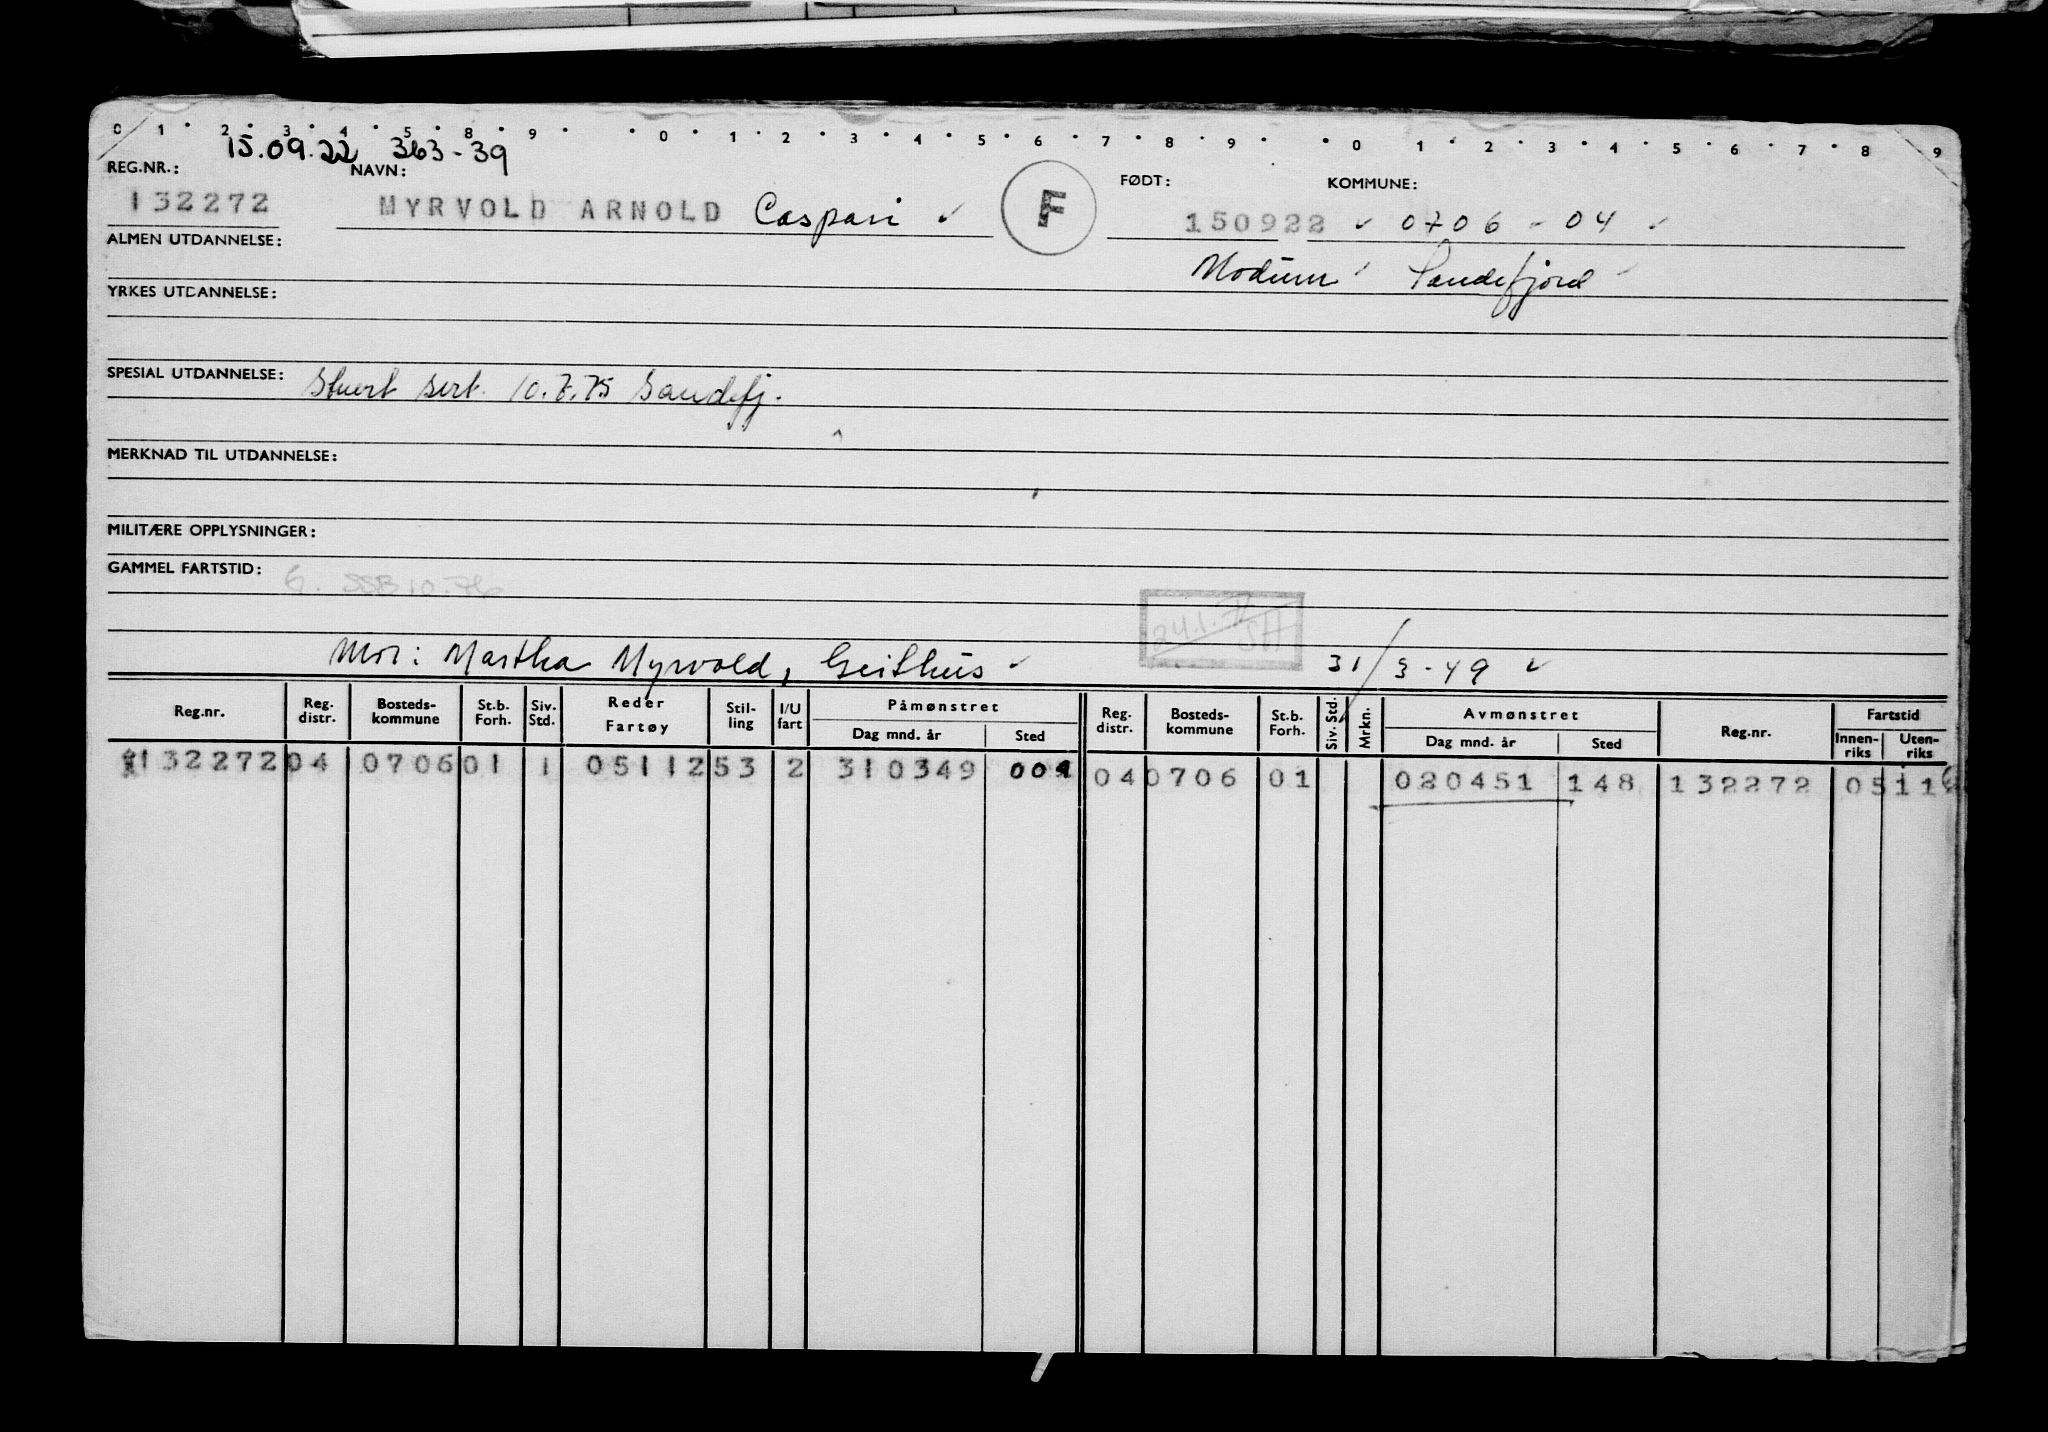 0 1 · 2 · 3 · 4 · 5 · 8 · 9 · · 0 · 1 · 2 · 3 · 4 · 5 · 6 · 7 · 8 · 9 · · 0 · 1 · 2 · 3 · 4 · 5 · 6 · 7 · 8 · 9
15.09.22 363-39
REG.NR.: NAVN: FØDT: KOMMUNE:
132272 MYRVOLD ARNOLD Caspari ✓ F 150922 ✓ 0706 - 04 ✓
ALMEN UTDANNELSE:
Modum Sandefjord
YRKES UTDANNELSE:
SPESIAL UTDANNELSE: Stuert sert. 10.7.75 Sandefj.
MERKNAD TIL UTDANNELSE:
MILITÆRE OPPLYSNINGER:
GAMMEL FARTSTID:
6. SSB 10.76
24.1.
Mor: Martha Myrvold, Geithus ✓ 31/3-49 ✓
Reg.nr. Reg. distr. Bosteds-kommune St.b. Forh. Siv. Std. Reder Fartøy Stil-ling I/U fart Påmønstret Dag mnd. år Sted Reg. distr. Bosteds-kommune St.b. Forh. Siv. Std. Mrkn. Avmønstret Dag mnd. år Sted Reg.nr. Fartstid Innen-riks Uten-riks
132272 04 0706 01 1 05112 53 2 310349 004 04 0706 01 020451 148 132272 05 11